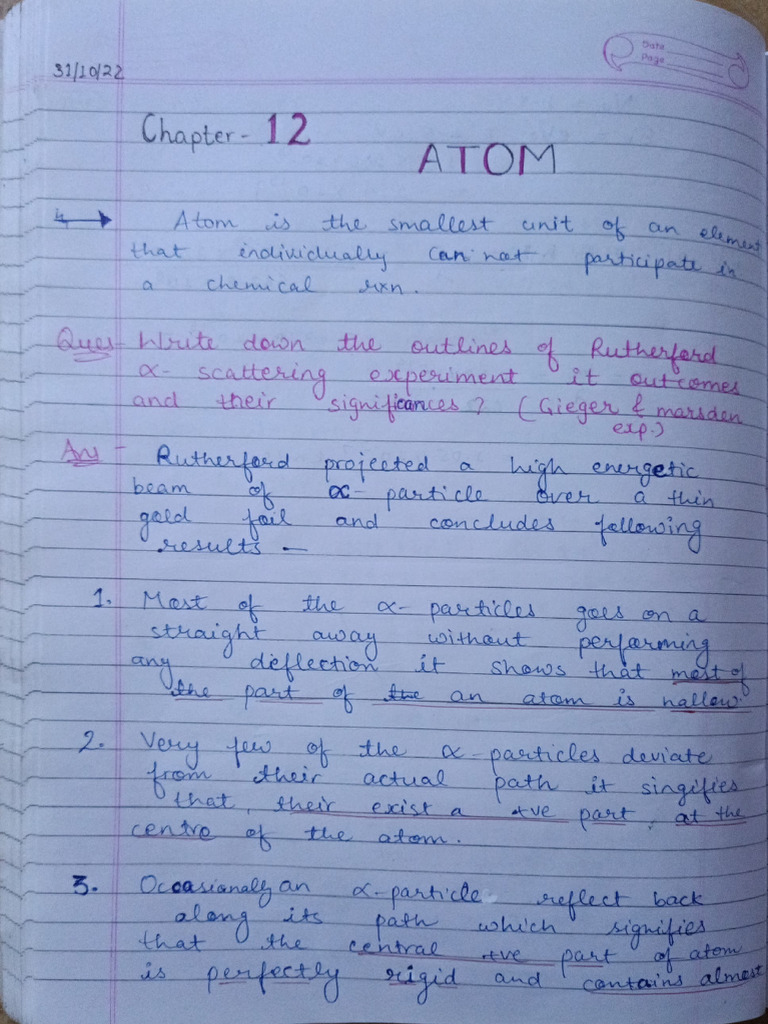 Date
Page
31/10/22
Chapter - 12
ATOM
Atom is the smallest unit of an element
that individually can not participate in
a chemical rxn.
Ques - Write down the outlines of Rutherford
α- scattering experiment it outcomes
and their significances? (Gieger & marsden
exp.)
Ans - Rutherford projected a high energetic
beam of α- particle over a thin
gold foil and concludes following
results —
1. Most of the α- particles goes on a
straight away without performing
any deflection it shows that most of
the part of the an atom is hallow.
2. Very few of the α-particles deviate
from their actual path it singifies
that, their exist a +ve part, at the
centre of the atom.
3. Occasionally an α-particle reflect back
along its path which signifies
that the central +ve part of atom
is perfectly rigid and contains almost